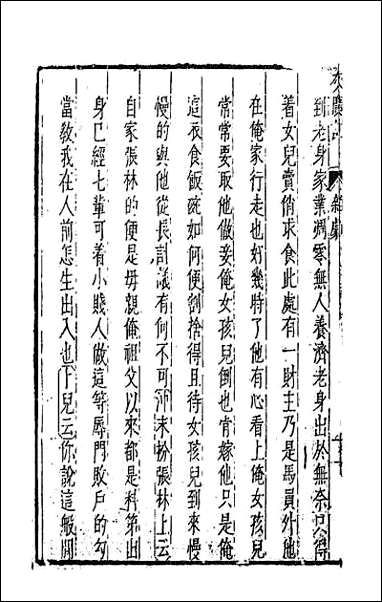 到老身家業凋零無人養濟老身出於無奈只得
着女兒賣俏求食此處有一財主乃是馬員外他
在俺家行走也好幾時了他有心看上俺女孩兒
常常要取他做妾俺女孩兒倒也肯嫁他只是俺
這衣食飯碗如何便割捨得且待女孩兒到來慢
慢的與他從長計議有何不可冲末扮張林上云
自家張林的便是母親俺祖父以來都是科第出
身已經七輩可着小賤人做這等辱門敗戶的勾
當敎我在人前怎生出入也卜兒云你說這般閒